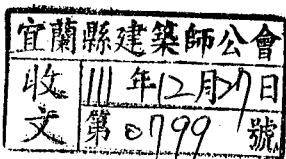 宜蘭縣建築師公會
收文
111年12月27日
第0799號